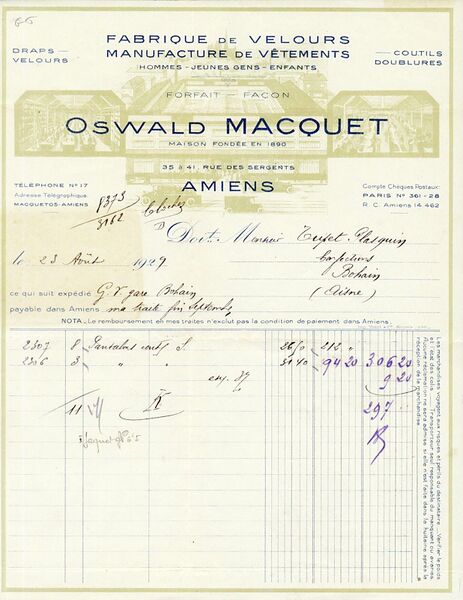 FABRIQUE DE VELOURS
MANUFACTURE DE VÊTEMENTS
HOMMES - JEUNES GENS - ENFANTS
DRAPS
VELOURS
COUTILS
DOUBLURES
FORFAIT - FAÇON
OSWALD MACQUET
MAISON FONDÉE EN 1890
35 À 41, RUE DES SERGENTS
AMIENS
TÉLÉPHONE N° 17
Adresse Télégraphique:
MACQUETOS-AMIENS
Compte Chèques Postaux:
PARIS N° 361-28
R.C. Amiens 14 462
8373
3162
Doit Monsieur
Bohain
(Aisne)
le 23 Août 1929
ce qui suit expédié G.V. gare Bohain
payable dans Amiens ma traite fin Septembre
NOTA. Le remboursement en mes traites n'exclut pas la condition de paiement dans Amiens.
2307 8 Pantalons S. 26.50 212
2306 3 " " 31.40 94 20 306 20
9 20
11 297
Les marchandises voyagent aux risques et périls du destinataire. - Vérifier le poids
et l'état des colis. - Transporteur seul responsable du manquant ou avaries
Aucune réclamation ne sera admise si elle n'est faite dans la huitaine après la
réception de la marchandise